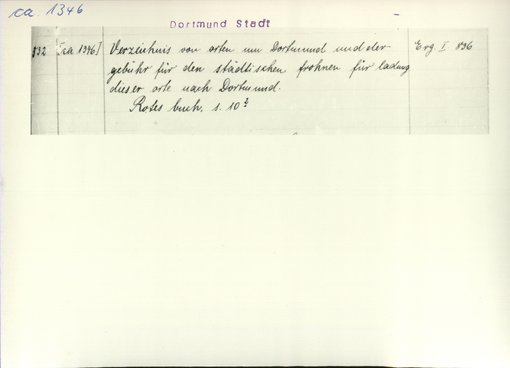 ca. 1346
Dortmund Stadt
832 [ca 1346] Verzeichnis von orten um Dortmund und der Erg. I 836
gebühr für den städtischen frohnen für ladung
dieser orte nach Dortmund.
Rotes buch, s. 10